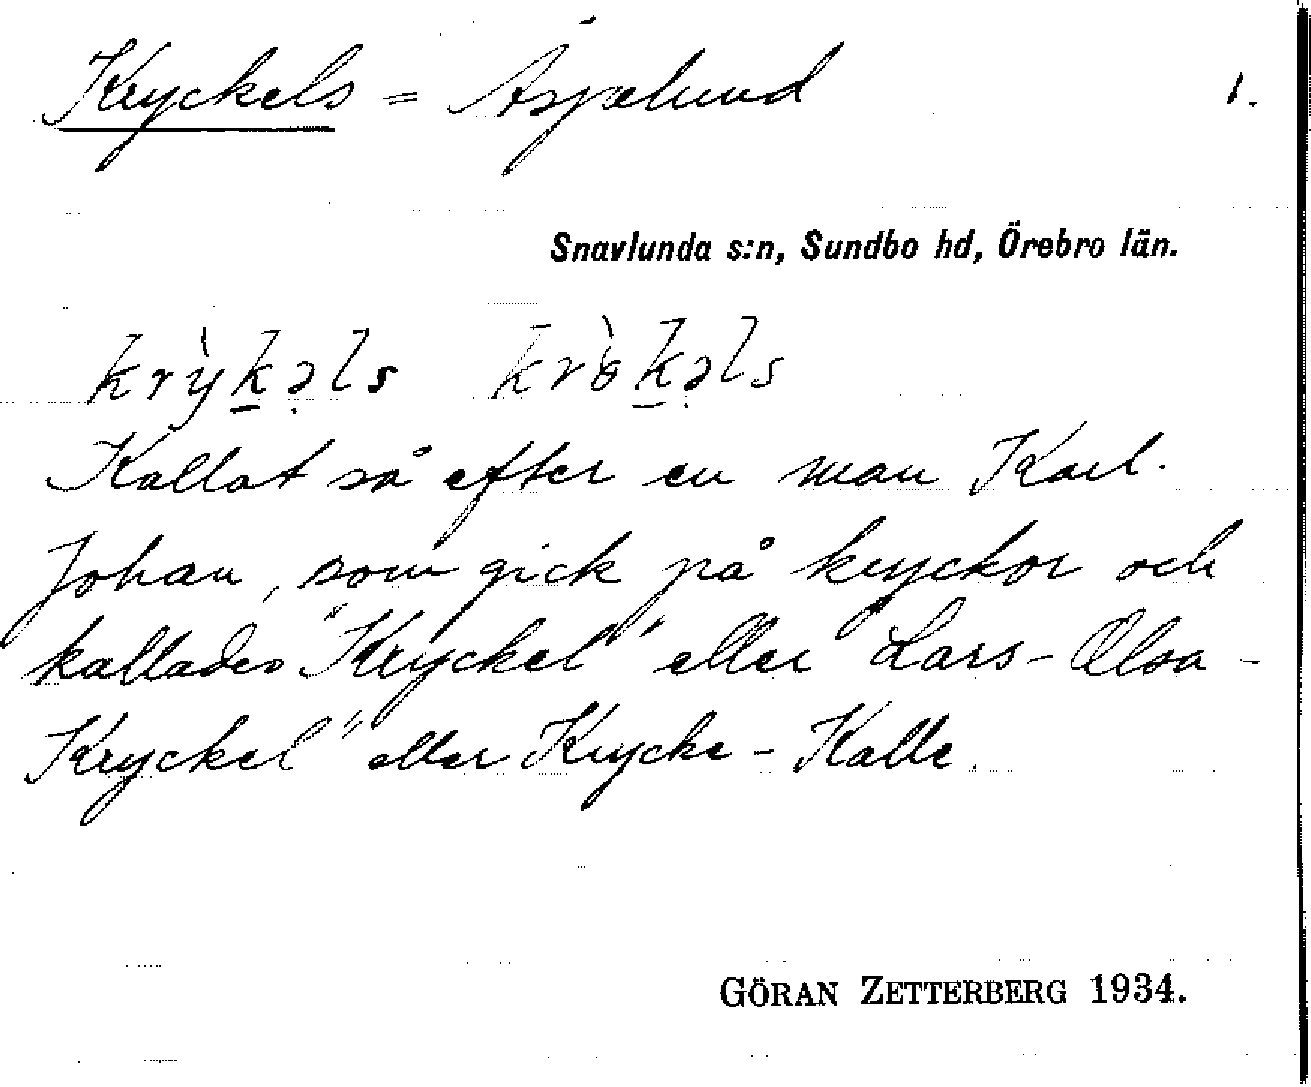 Kryckels = Äspelund 1.
Snavlunda s:n, Sundbo hd, Örebro län.
krỳk̠ə̣ls krɞ̀k̠ə̣ls
Kallat så efter en man Karl-
Johan, som gick på kryckor och
kallades "Kryckel" eller "Lars-Olsa-
Kryckel" eller Krycke-Kalle.
GÖRAN ZETTERBERG 1934.